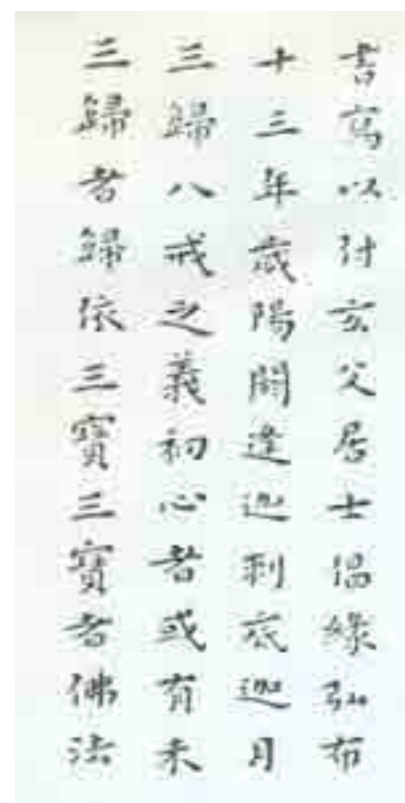 書寫以付玄父居士倡緣弘布
十三年歲陽閼逢迦剌底迦月
三歸八戒之義初心者或有未
三歸者歸依三寶三寶者佛法